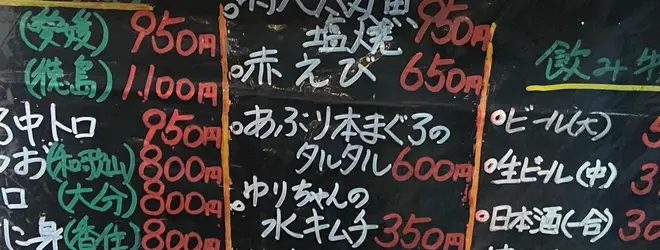 (愛媛) 950円
(徳島) 1,100円
中トロ 950円
つお(和歌山) 800円
ロ(大分) 800円
に身(香住) 800円
950円
塩焼
赤えび 650円
あぶり本まぐろの
タルタル 600円
ゆりちゃんの
水キムチ 350円
飲み物
ビール(大) 5
生ビール(中) 3
日本酒(一合) 30